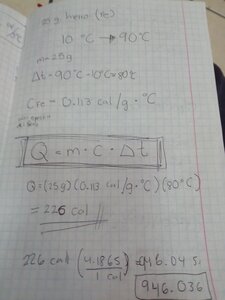 25g hierro (Fe)
10 °C → 90°C
m=25g
Δt=90°C-10°C=80°C
CFe = 0.113 cal/g·°C
Q = m · C · Δt
Q=(25g)(0.113 cal/g·°C)(80°C)
= 226 cal
226 cal (4.1865 / 1 cal) =
946.036